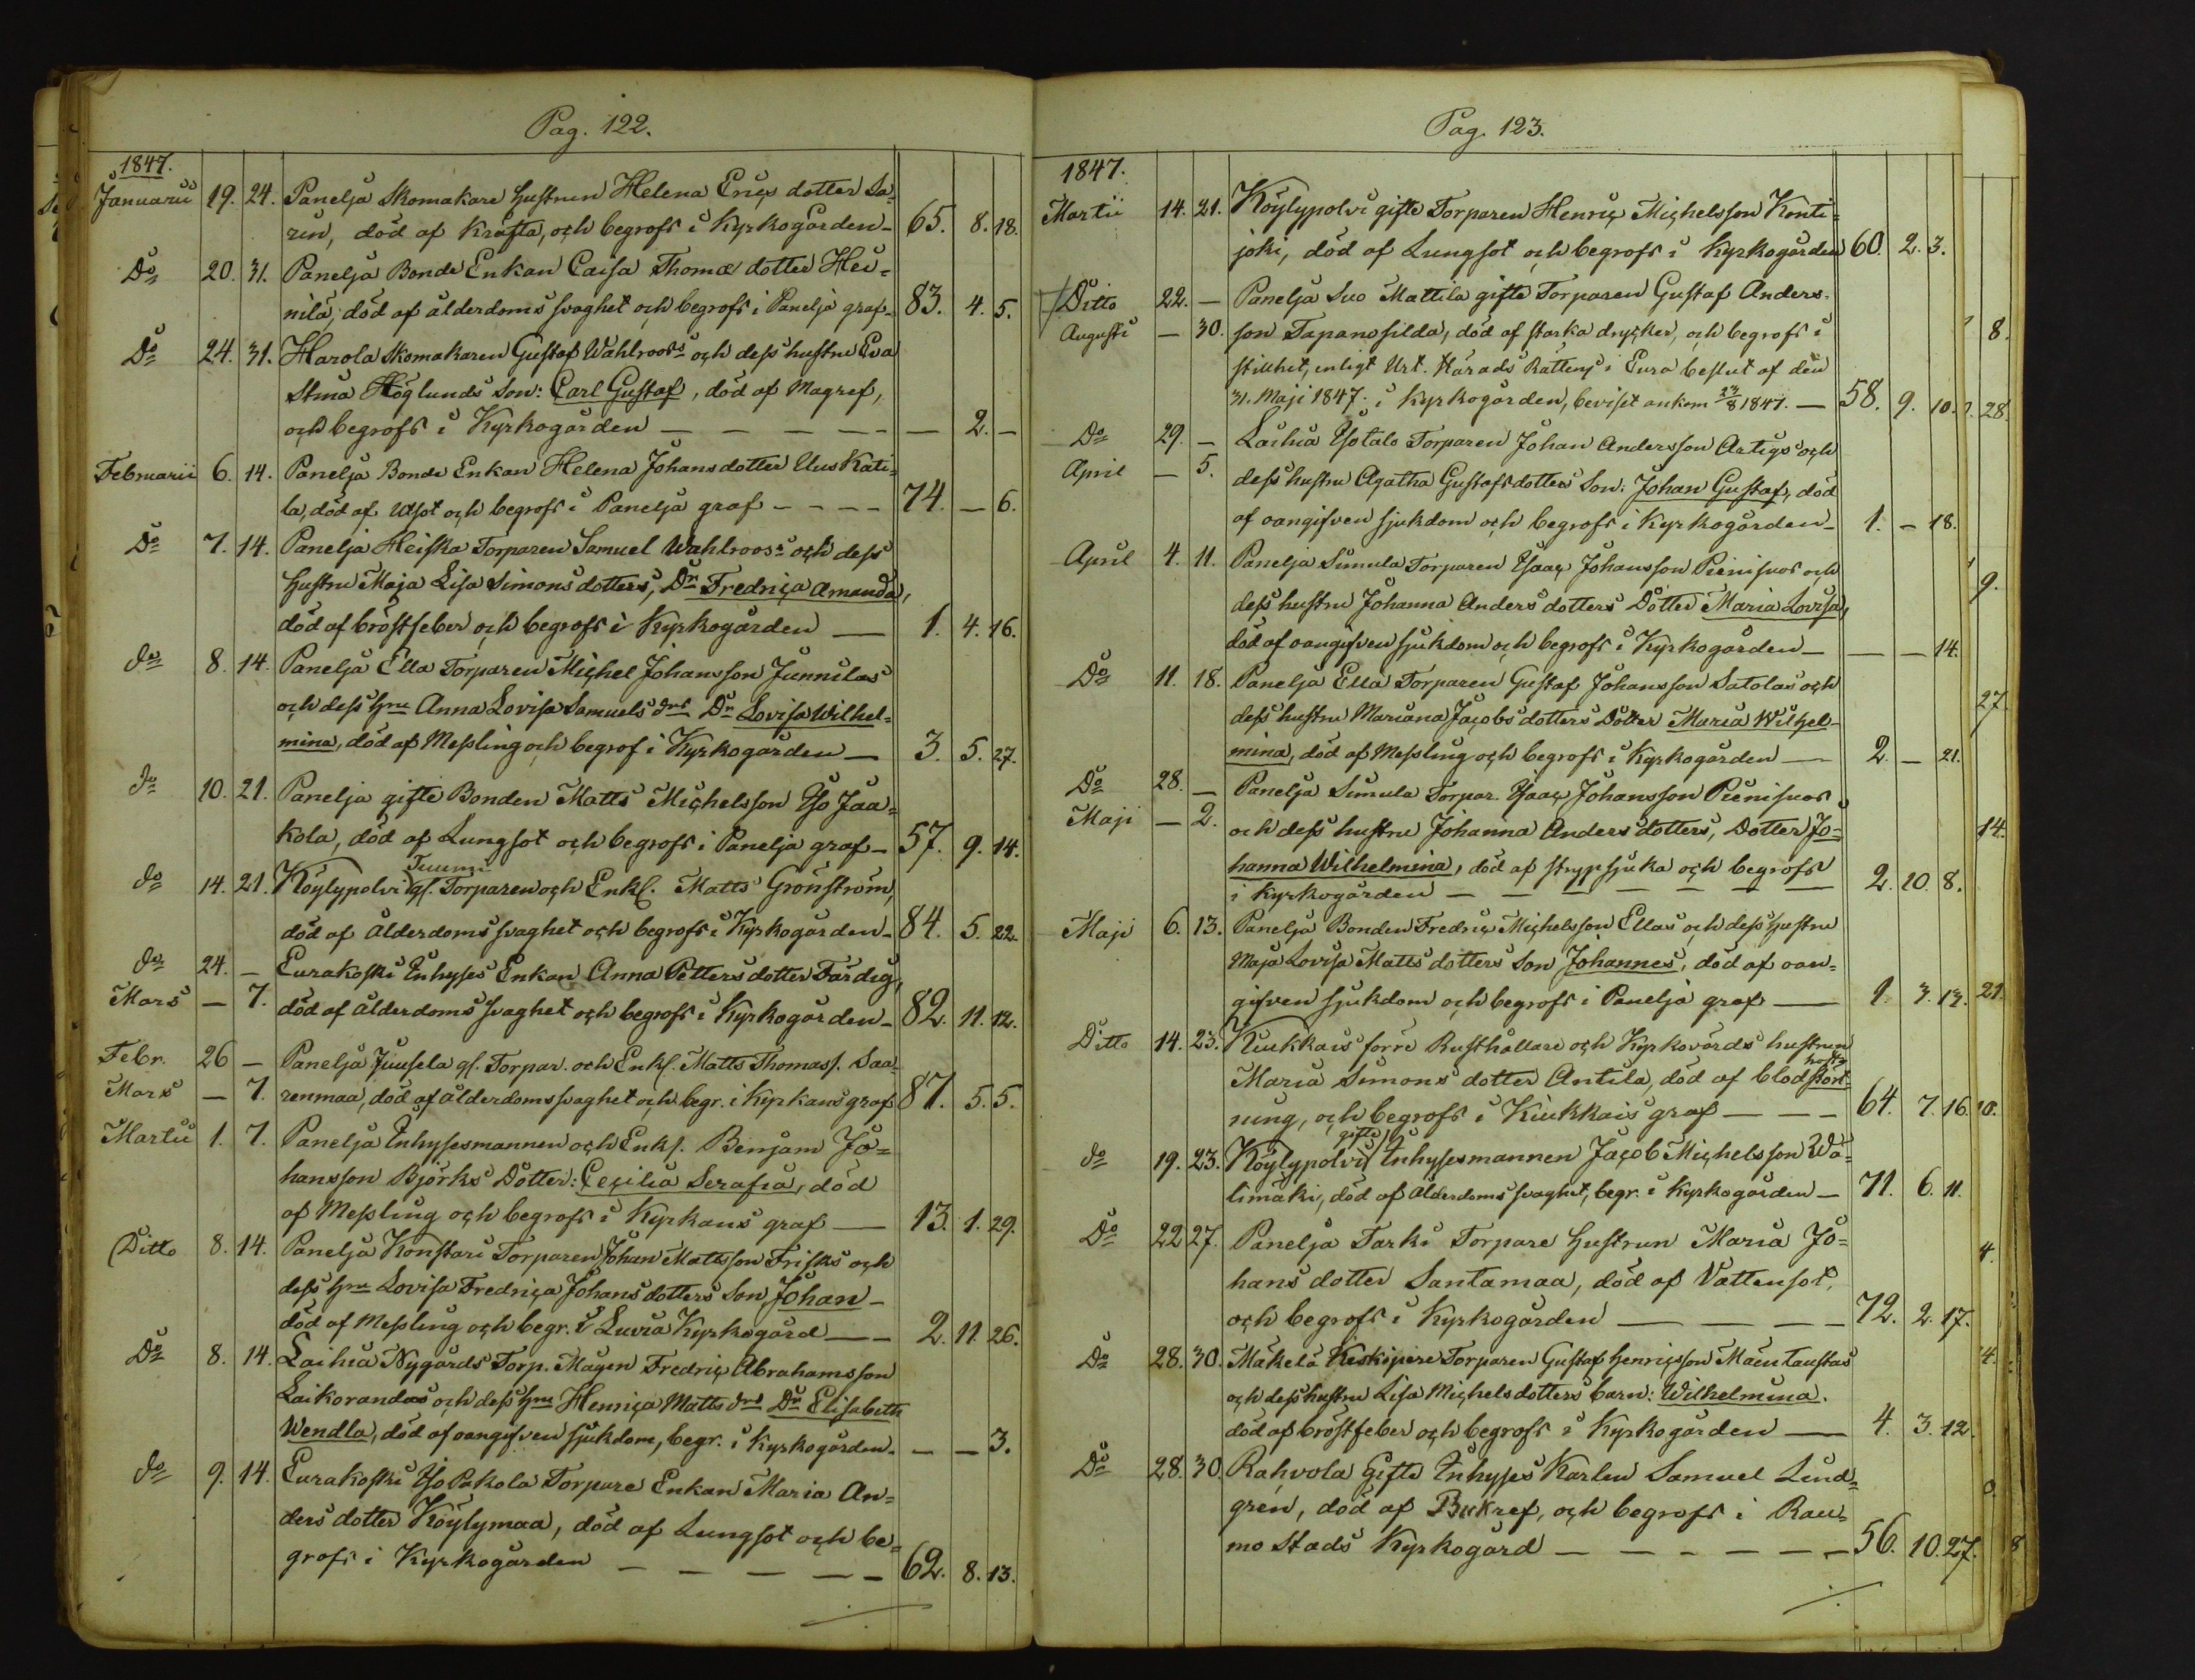 Pag. 122.
1847.
Januarii 19. 24. Panelja Skomakare hustrun Helena Erics dotter Sa-
rin, död af Kräfta, och begrofs i Kyrkogården - 65. 8. 18.
Do 20. 31. Panelja Bonde Enkan Caisa Thomæ dotter Hei-
nilä, död af ålderdoms svaghet och begrofs i Panelja graf - 83. 4. 5.
Do 24. 31. Harola Skomakaren Gustaf Wahlroos's och dess hustru Eva
Stina Höglunds Son: Carl Gustaf, död af Magref,
och begrofs i Kyrkogården - - - - - 2. -
Februarii 6. 14. Panelja Bonde Enkan Helena Johansdotter Uus Kati-
la, död af Utsot och begrofs i Panelja graf - - - - 74. - 6.
Do 7. 14. Panelja Heiska Torparen Samuel Wahlroos's och dess
hustru Maja Lisa Simons dotters, Dr Fredrica Amanda,
död af bröstfeber och begrofs i Kyrkogården - 1. 4. 16.
do 8. 14. Panelja Ella Torparen Michel Johansson Junnilas
och dess Hru Anna Lovisa Samuels drs Dr Lovisa Wilhel-
mina, död af Messling och begrof i Kyrkogården - 3. 5. 27.
do 10. 21. Panelja gifte Bonden Matts Michelsson Yso Jaa-
kola, död af Lungsot och begrofs i Panelja graf - 57. 9. 14.
Tuumi
do 14. 21. Köylypolvi gl. Torparen och Enkl. Matts Grönström,
död af ålderdoms svaghet och begrofs i Kyrkogården - 84. 5. 22.
do 24. - Eurakoski Inhyses Enkan Anna Petters dotter Färdig,
Mars - 7. död af ålderdoms svaghet och begrofs i Kyrkogården - 82. 11. 12.
Febr. 26 - Panelja Juusela gl. Torpar. och Enkl. Matts Thomass. Saa-
Mars - 7. renmaa, död af ålderdomssvaghet och begr. i Kyrkans graf 87. 5. 5.
Martii 1. 7. Panelja Inhysesmannen och Enkl. Benjam Jo-
hansson Björks Dotter: Cecilia Serafia, död
af Messling och begrofs i Kyrkans graf - 13. 1. 29.
Ditto 8. 14. Panelja Konstari Torparen Johan Mattsson Frisks och
dess Hru Lovisa Fredrica Johans dotters Son Johan -
död af Messling och begr. i Luvia Kyrkogård - 2. 11. 26.
Do 8. 14. Laihia Nygårds Torp. Mågen Fredric Abrahamsson
Laikorandas och dess Hru Henrica Matts drs Dr Elisabeth
Wendla, död af oangifven sjukdom, begr. i Kyrkogården. - - 3.
do 9. 14. Eurakoski Yso Pakola Torpare Enkan Maria An-
ders dotter Köylymaa, död af Lungsot och be-
grofs i Kyrkogården - - - - - 62. 8. 13.
Pag. 123.
1847.
Martii 14. 21. Köylypolvi gifte Torparen Henric Michelsson Konti-
joki, död af Lungsot och begrofs i Kyrkogården 60. 2. 3.
Ditto 22. - Panelja Suo Mattila gifte Torparen Gustaf Anders-
Augusti - 30. son Tapanosilda, död af starka drycker, och begrofs i
stillhet, enligt Urt. Härads Rättens i Eura beslut af den
31. Maji 1847. i Kyrkogården, beviset ankom 23/8 1847. - 58. 9. 10.
Do 29. - Laihia Ysotalo Torparen Johan Andersson Artigs och
April - 5. dess hustru Agatha Gustafsdotters Son: Johan Gustaf, död
af oangifven sjukdom och begrofs i Kyrkogården - 1. - 18.
April 4. 11. Panelja Simula Torparen Ysaac Johansson Pienisuos och
dess hustru Johanna Anders dotters Dotter Maria Lovisa,
död af oangifven sjukdom och begrofs i Kyrkogården - - - 14.
Do 11. 18. Panelja Ella Torparen Gustaf Johansson Satolas och
dess hustru Mariana Jacobs dotters Dotter Maria Wilhel-
mina, död af Messling och begrofs i Kyrkogården - 2. - 21.
Do 28. - Panelja Simula Torpar. Ysaac Johansson Pienisuos
Maji - 2. och dess hustru Johanna Anders dotters, Dotter Jo-
hanna Wilhelmina, död af strypsjuka och begrofs
i Kyrkogården - - - - - - 2. 10. 8.
Maji 6. 13. Panelja Bonden Fredric Michelsson Ellas och dess hustru
Maja Lovisa Matts dotters Son Johannes, död af oan-
gifven sjukdom och begrofs i Panelja graf - 1. 3. 13.
Ditto 14. 23. Kiukkais förre Rusthållare och Kyrkovärds hustrun
Maria Simons dotter Antila, död af blodstört-
ning, och begrofs i Kiukkais graf - - - 64. 7. 16.
gifte
do 19. 23. Köylypolvi Inhysesmannen Jacob Michelsson Wä-
limäki, död af ålderdoms svaghet, begr. i Kyrkogården - 71. 6. 11.
Do 22 27. Panelja Tarki Torpare hustrun Maria Jo-
hans dotter Santamaa, död af Vattensot,
och begrofs i Kyrkogården - - - - 72. 2. 17.
Do 28. 30. Mäkelä Keskipere Torparen Gustaf Henricsson Mäentaustas
och dess hustru Lisa Michels dotters barn: Wilhelmina.
död af bröstfeber och begrofs i Kyrkogården - 4. 3. 12.
Do 28. 30. Rahvola Gifte Inhyses Karlen Samuel Lind-
grén, död af Bukref, och begrofs i Rau-
mo Stads Kyrkogård - - - - - - 56. 10. 27.